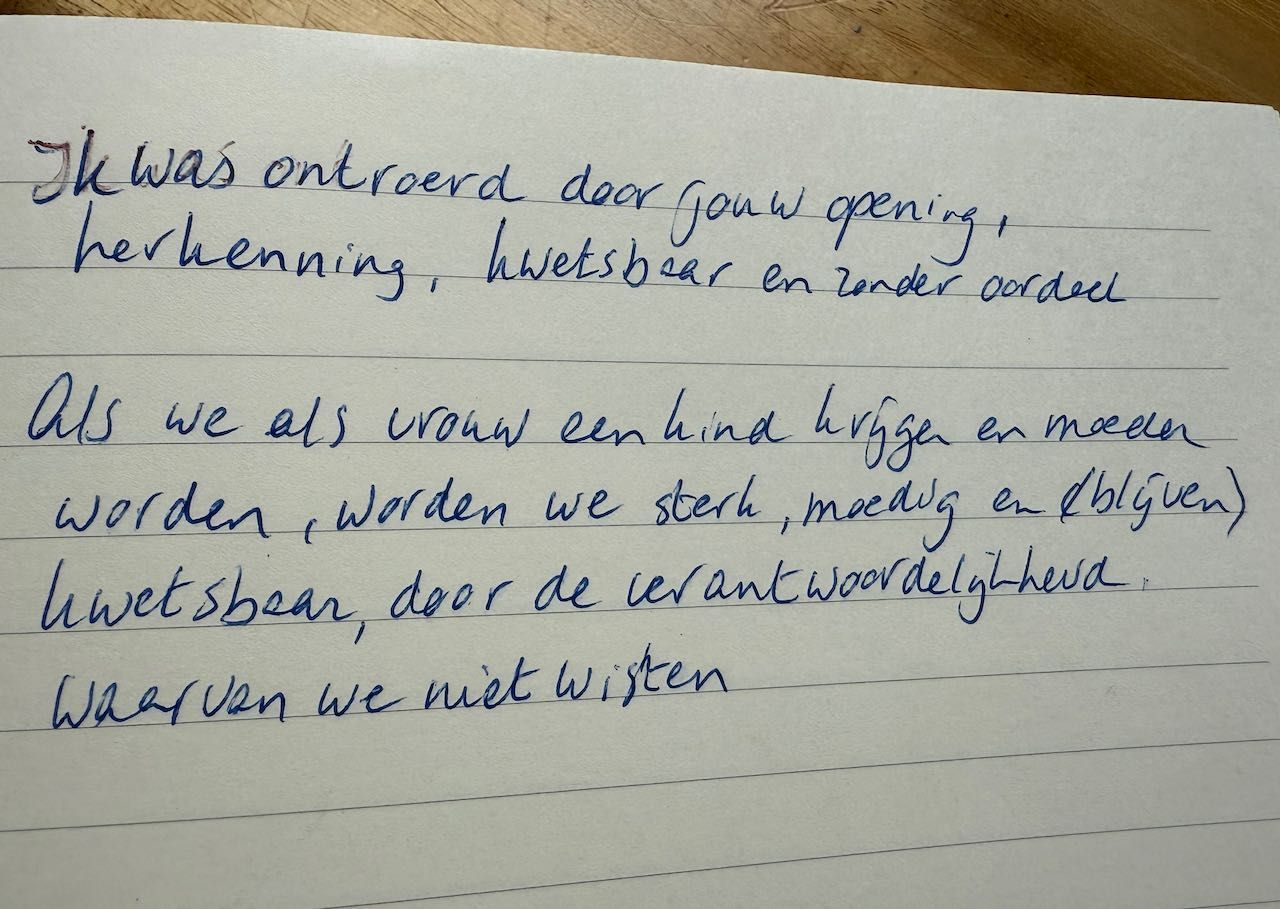 Ik was ontroerd door jouw opening,
herkenning, kwetsbaar en zonder oordeel
Als we als vrouw een kind krijgen en moeder
worden, worden we sterk, moedig en (blijven)
kwetsbaar, door de verantwoordelijkheid.
waarvan we niet wisten